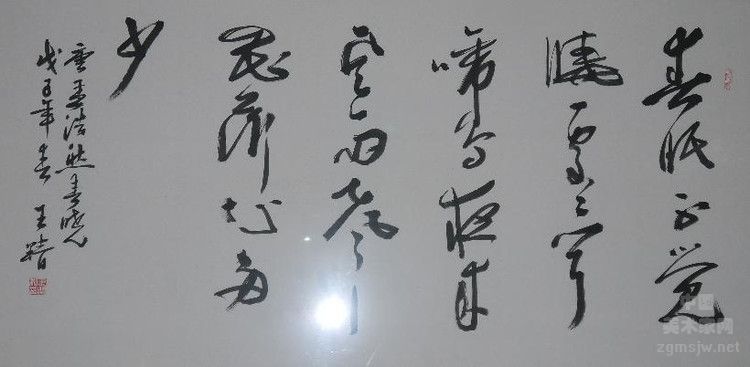 春眠不觉
曉處々闻
啼鸟夜来
风雨聲
花落知多
少
唐孟浩然春晓
戊子年春 王精
中国
美术家网
zgmsjw.net